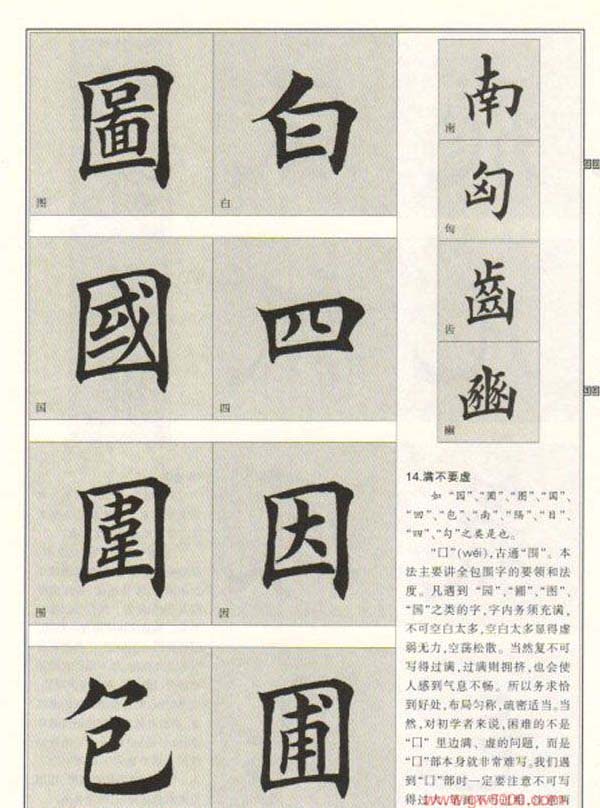 圖 白
图 白
國 四
国 四
圍 因
围 因
包 圃
南
南
匈
匈
齒
齿
豳
豳
14.满不要虚
如“园”、“圃”、“图”、“国”、
“回”、“包”、“南”、“隔”、“目”、
“四”、“勾”之类是也。
“囗”(wéi),古通“围”。本
法主要讲全包围字的要领和法
度。凡遇到“园”、“圃”、“图”、
“国”之类的字,字内务须充满,
不可空白太多,空白太多显得虚
弱无力,空荡松散。当然复不可
写得过满,过满则拥挤,也会使
人感到气息不畅。所以务求恰
到好处,布局匀称,疏密适当。当
然,对初学者来说,困难的不是
“囗”里边满、虚的问题,而是
“囗”部本身就非常难写。我们遇
到“囗”部时一定要注意不可写
得过大